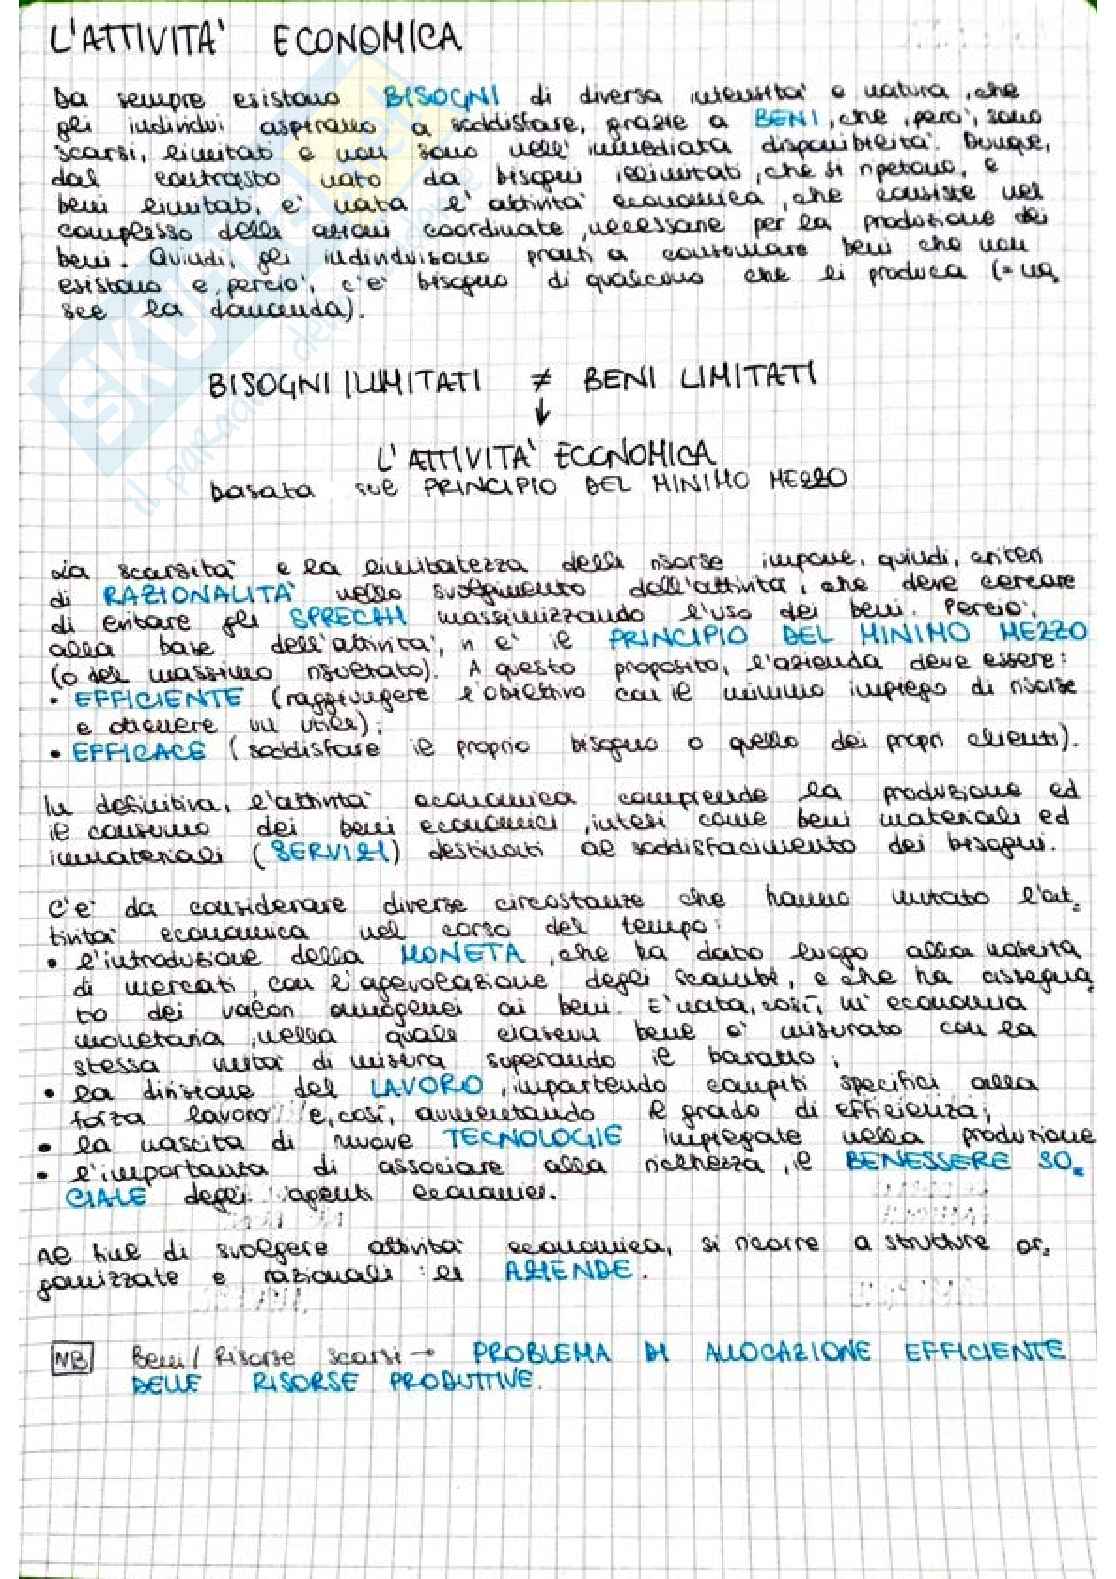 L'ATTIVITA' ECONOMICA
Da sempre esistono BISOGNI di diversa intensita' e natura, che
gli individui aspirano a soddisfare, grazie a BENI, che, pero', sono
scarsi, limitati e non sono nell'immediata disponibilita'. Dunque,
dal contrasto nato da bisogni illimitati, che si ripetono, e
beni limitati, e' nata l'attivita' economica, che consiste nel
complesso delle azioni coordinate, necessarie per la produzione dei
beni. Quindi, gli individui sono pronti a consumare beni che non
esistono e, percio', c'e' bisogno di qualcuno che li produca (= na
sce la domanda).
BISOGNI ILLIMITATI ≠ BENI LIMITATI
↓
L'ATTIVITA' ECONOMICA
basata sul PRINCIPIO DEL MINIMO MEZZO
La scarsita' e la limitatezza delle risorse impone, quindi, criteri
di RAZIONALITA' nello svolgimento dell'attivita', che deve cercare
di evitare gli SPRECHI massimizzando l'uso dei beni. Percio',
alla base dell'attivita', vi e' il PRINCIPIO DEL MINIMO MEZZO
(o del massimo risultato). A questo proposito, l'azienda deve essere:
• EFFICIENTE (raggiungere l'obiettivo con il minimo impiego di risorse
e ottenere un utile);
• EFFICACE (soddisfare il proprio bisogno o quello dei propri clienti).
In definitiva, l'attivita' economica comprende la produzione ed
il consumo dei beni economici, intesi come beni materiali ed
immateriali (SERVIZI) destinati al soddisfacimento dei bisogni.
C'e' da considerare diverse circostanze che hanno mutato l'at-
tivita' economica nel corso del tempo:
• l'introduzione della MONETA, che ha dato luogo alla nascita
di mercati, con l'agevolazione degli scambi, e che ha assegna
to dei valori omogenei ai beni. E' nata, così, un'economia
monetaria, nella quale ciascun bene e' misurato con la
stessa unita' di misura superando il baratto;
• la divisione del LAVORO, impartendo compiti specifici alla
forza lavoro e, così, aumentando il grado di efficienza;
• la nascita di nuove TECNOLOGIE impiegate nella produzione
• l'importanza di associare alla ricchezza, il BENESSERE SO-
CIALE degli agenti economici.
Al fine di svolgere attivita' economica, si ricorre a strutture or-
ganizzate e razionali: le AZIENDE.
NB Beni/Risorse scarsi → PROBLEMA DI ALLOCAZIONE EFFICIENTE
DELLE RISORSE PRODUTTIVE.